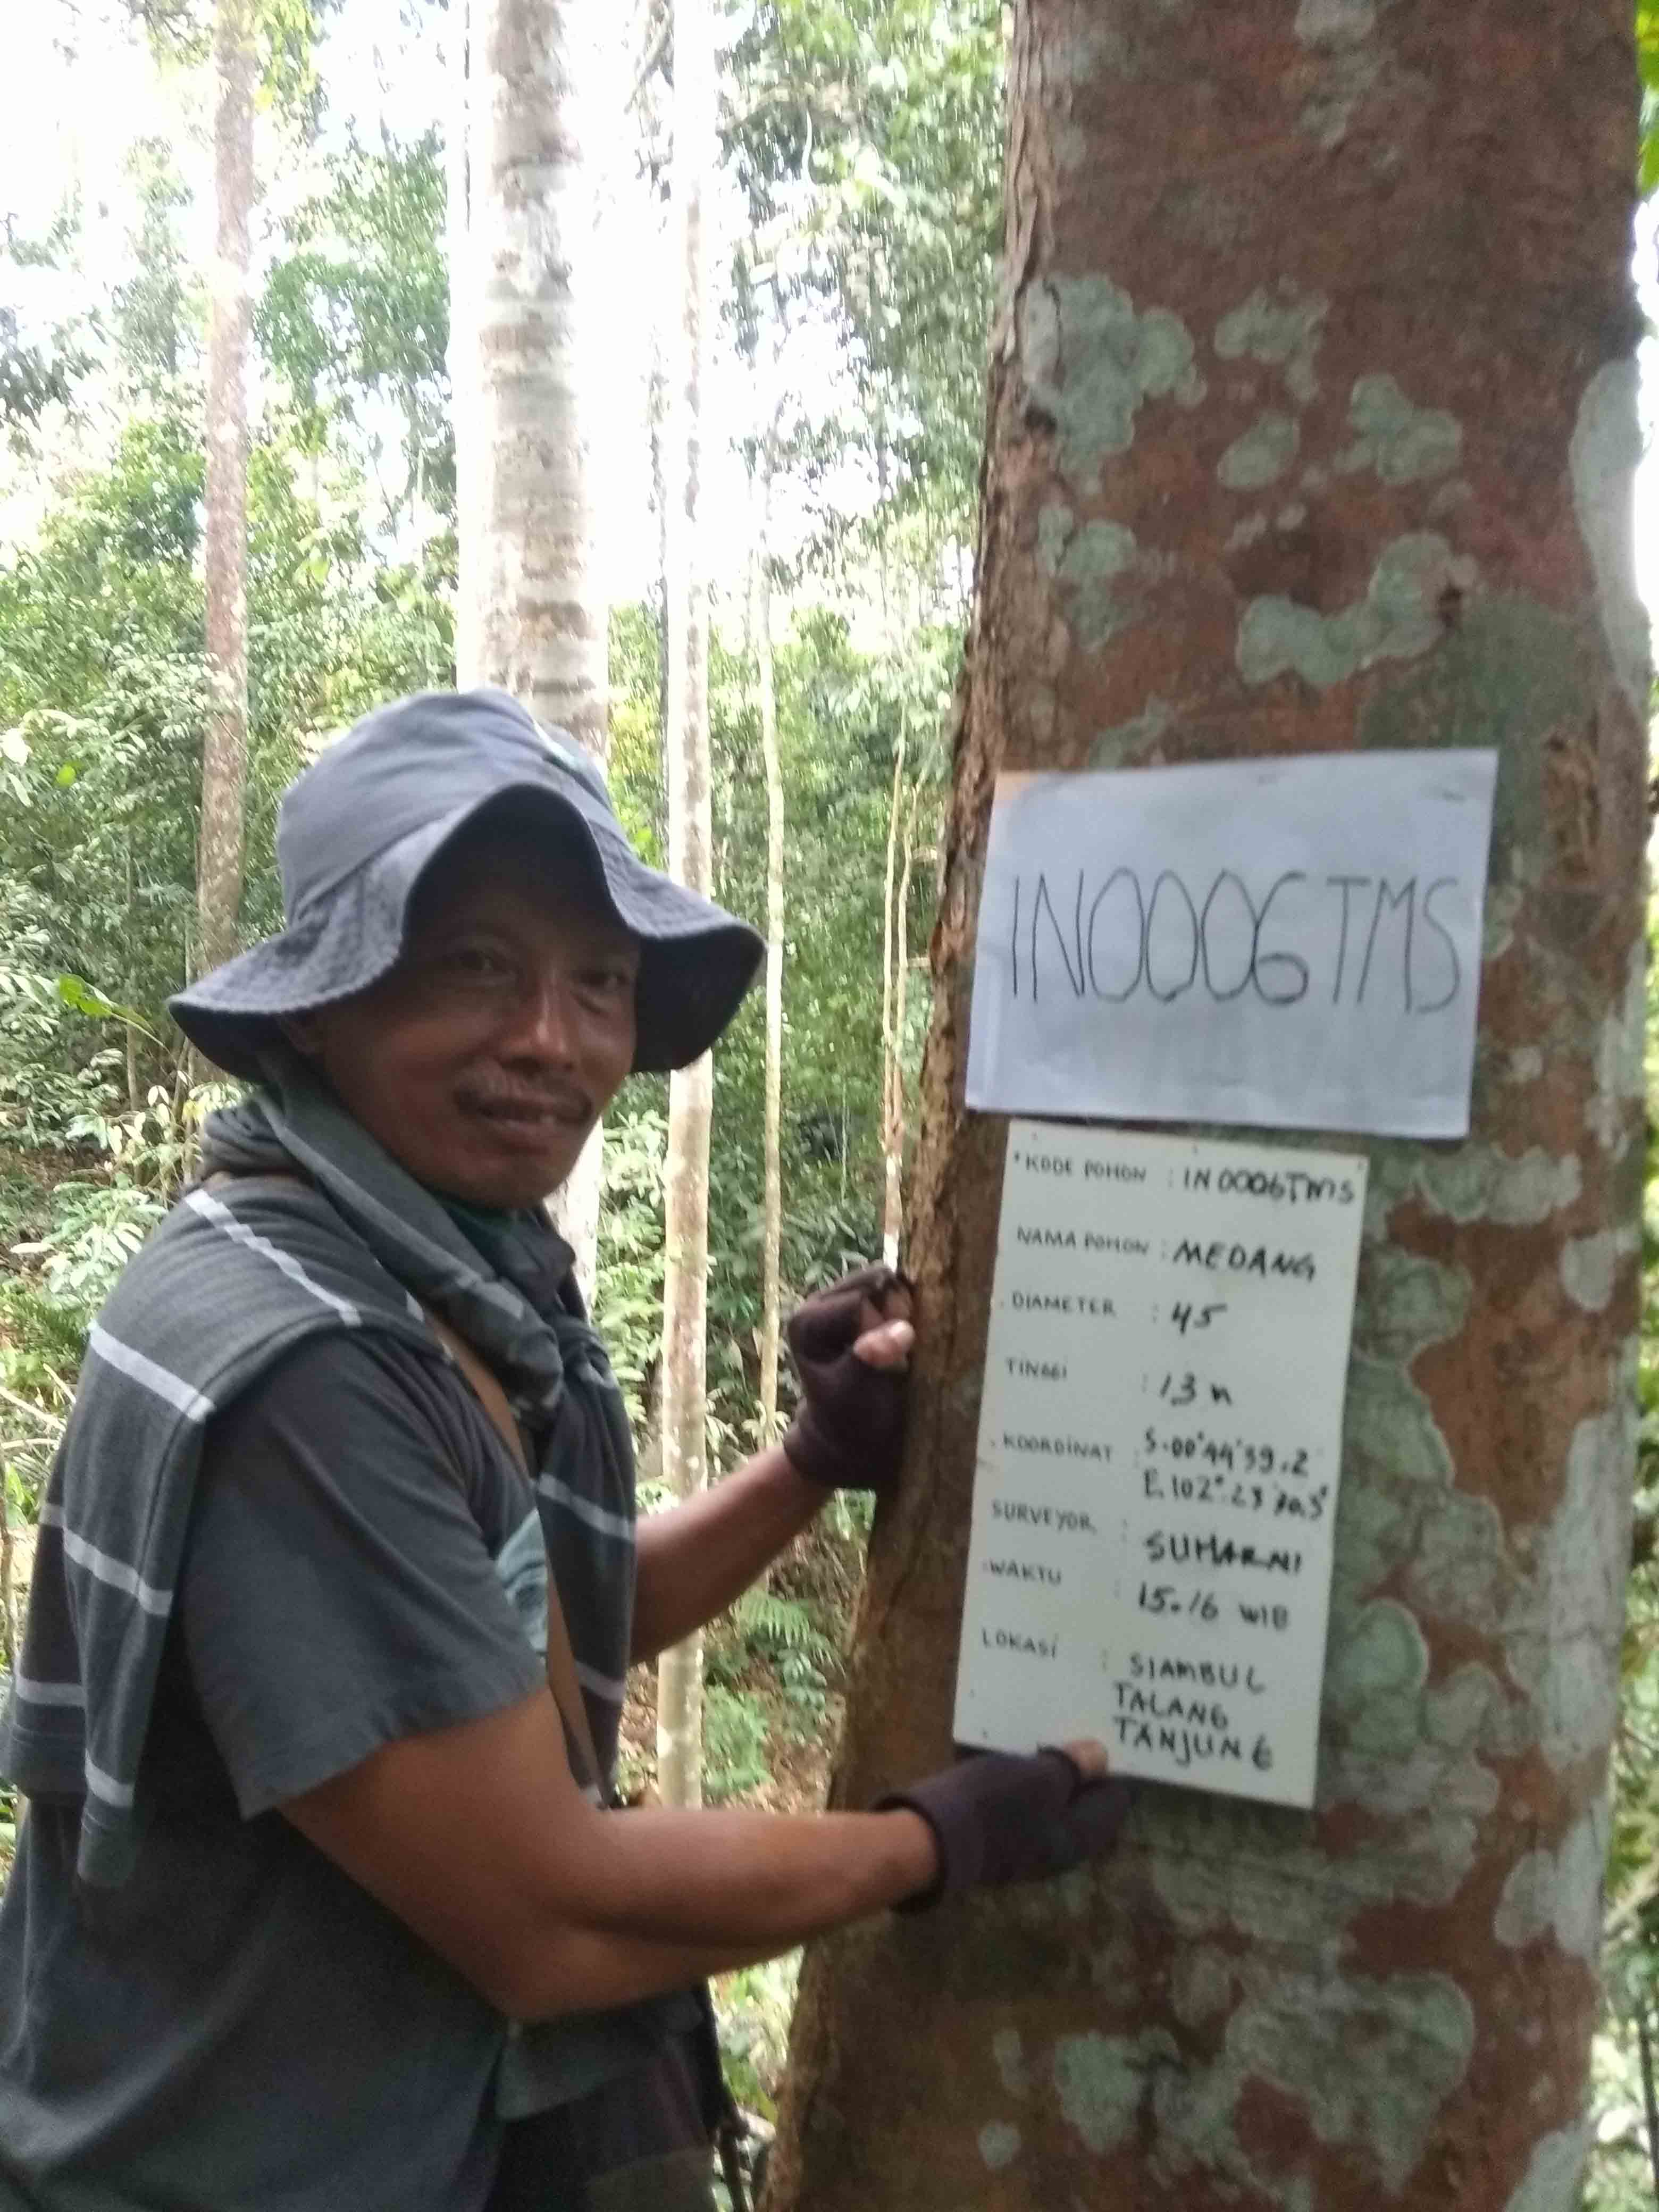 IN0006TMS
* KODE POHON : IN0006TMS
NAMA POHON : MEDANG
. DIAMETER : 45
TINGGI : 13 M
. KOORDINAT : S.00°44'39.2
E.102°.23
SURVEYOR : SUHARNI
. WAKTU : 15.16 WIB
LOKASI : SIAMBUL
TALANG
TANJUNG